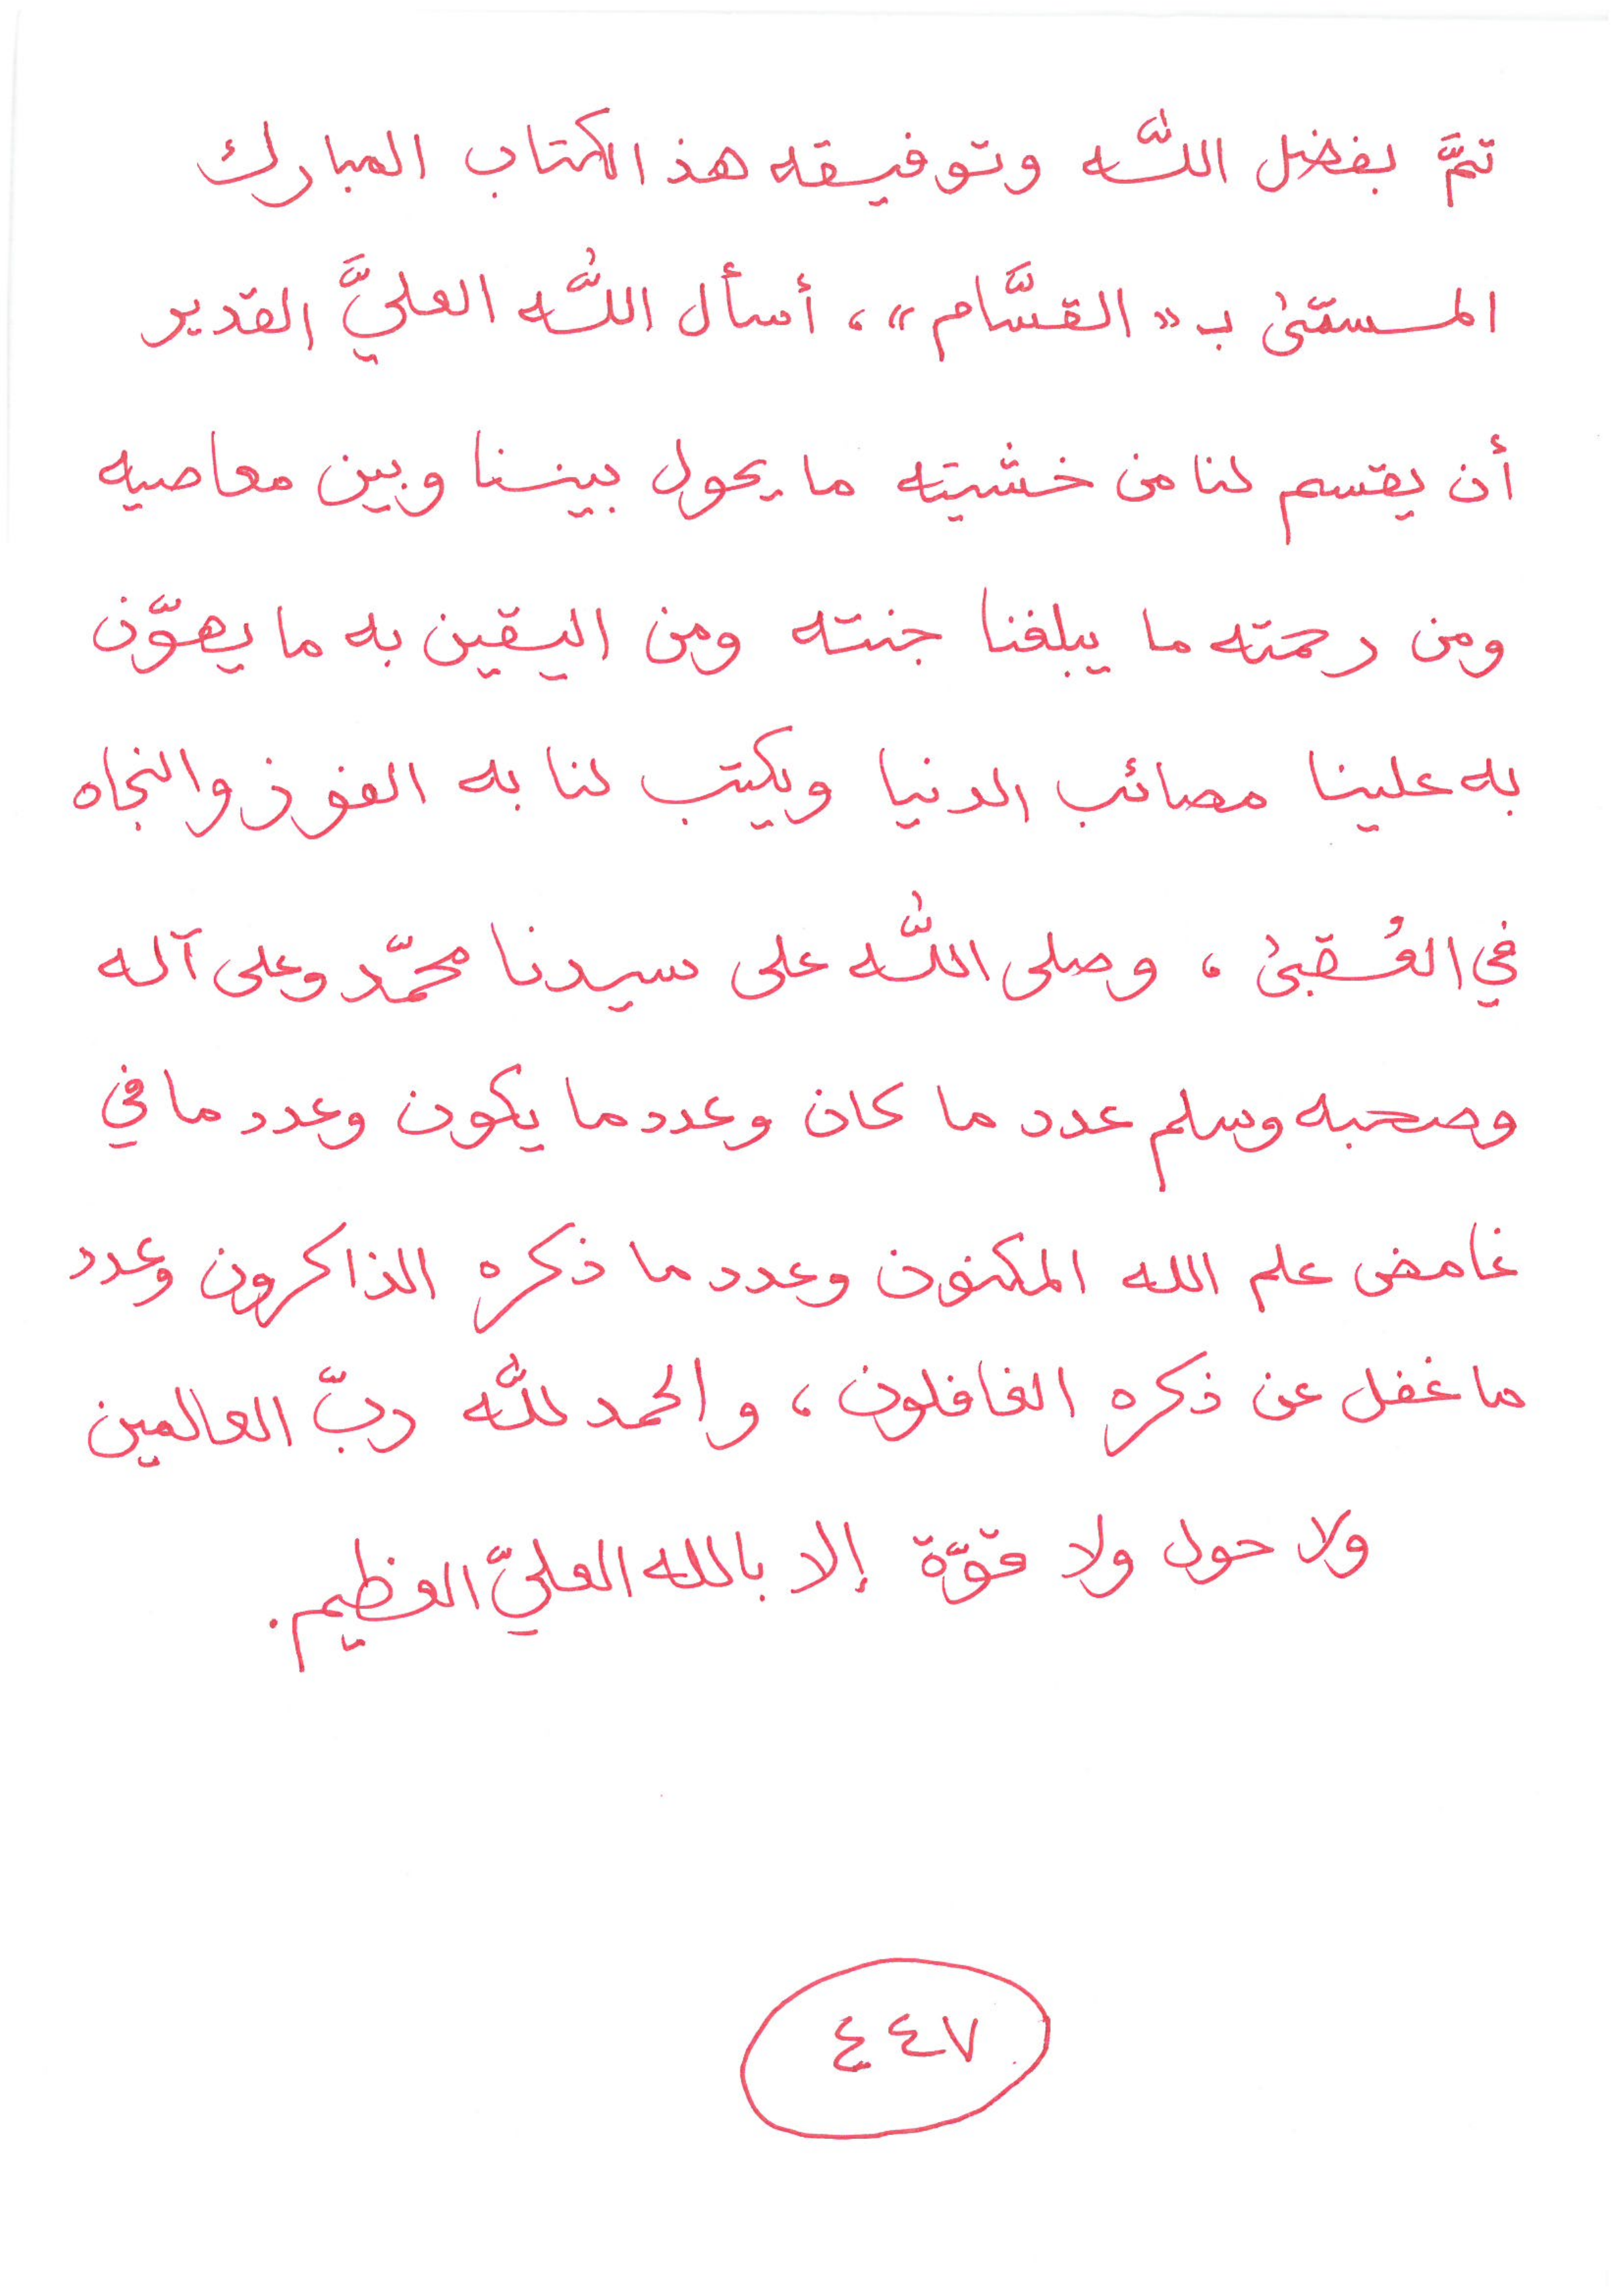 تمَّ بفضل اللّٰه وتوفيقه هذا الكتاب المبارك
المسمّىٰ بـ «القسَّام»، أسأل اللّٰه العليَّ القدير
أن يقسم لنا من خشيته ما يحول بيننا وبين معاصيه
ومن رحمته ما يبلغنا جنته ومن اليقين به ما يهوّن
به علينا مصائب الدنيا ويكتب لنا به الفوز والنجاه
في العُقبىٰ، وصلى اللّٰه على سيدنا محمّد وعلى آله
وصحبه وسلم عدد ما كان وعدد ما يكون وعدد ما في
غامض علم الله المكنون وعدد ما ذكره الذاكرون وعدد
ما غفل عن ذكره الغافلون، والحمد للّٰه ربّ العالمين
ولا حول ولا قوّة إلا بالله العليّ العظيم.
٤٤٧